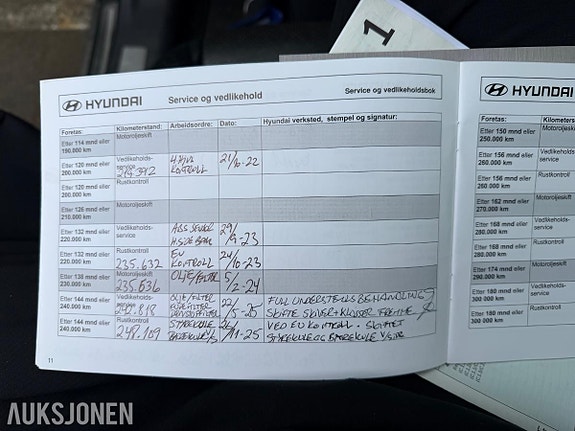 1
HYUNDAI Service og vedlikehold Service og vedlikeholdsbok
Foretas: Kilometerstand: Arbeidsordre: Dato: Hyundai verksted, stempel og signatur:
Etter 114 mnd eller 190.000 km Motoroljeskift
Etter 120 mnd eller 200.000 km Vedlikeholds-service 4 HJUL KONTROLL 21/10-22
Etter 120 mnd eller 200.000 km Rustkontroll
Etter 126 mnd eller 210.000 km Motoroljeskift
Etter 132 mnd eller 220.000 km Vedlikeholds-service ABS SENSOR H.SIDE BAK 29/9-23
Etter 132 mnd eller 220.000 km Rustkontroll 235.632 EU KONTROLL 24/10-23
Etter 138 mnd eller 230.000 km Motoroljeskift 235.636 OLJE/FILTER 5/2-24
Etter 144 mnd eller 240.000 km Vedlikeholds-service OLJE/FILTER 22/5-25 FULL UNDERSTELLS BEHANDLING
SKIFTE SKIVER + KLOSSER FREMME
Etter 144 mnd eller 240.000 km Rustkontroll 248.109 STYREKULE BÆREKULE V/S 26/11-25 VED EU KONTROLL. SKIFTET
STYREKULE OG BÆREKULE
11
HYUNDAI
Foretas:
Etter 150 mnd eller 250.000 km Motoroljeskift
Etter 156 mnd eller 260.000 km Vedlikeholds-service
Etter 156 mnd eller 260.000 km Rustkontroll
Etter 162 mnd eller 270.000 km Motoroljeskift
Etter 168 mnd eller 280.000 km Vedlikeholds-service
Etter 168 mnd eller 280.000 km Rustkontroll
Etter 174 mnd eller 290.000 km Motoroljeskift
Etter 180 mnd eller 300.000 km Vedlikeholds-service
Etter 180 mnd eller 300 000 km Rustkontroll
AUKSJONEN